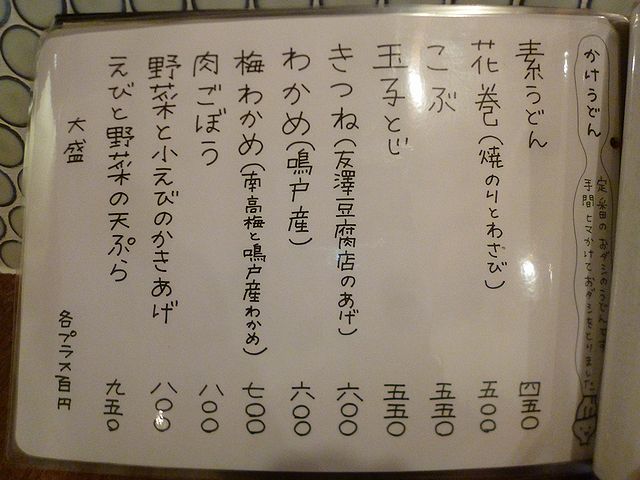 かけうどん
定番のおダシのうどんです
手間ヒマかけておダシをとりました
素うどん 四五〇
花巻(焼のりとわさび) 五〇〇
こぶ 五五〇
玉子とじ 五五〇
きつね(友澤豆腐店のあげ) 六〇〇
わかめ(鳴戸産) 六〇〇
梅わかめ(南高梅と鳴戸産わかめ) 七〇〇
肉ごぼう 八〇〇
野菜と小えびのかきあげ 八〇〇
えびと野菜の天ぷら 九五〇
大盛 各プラス百円